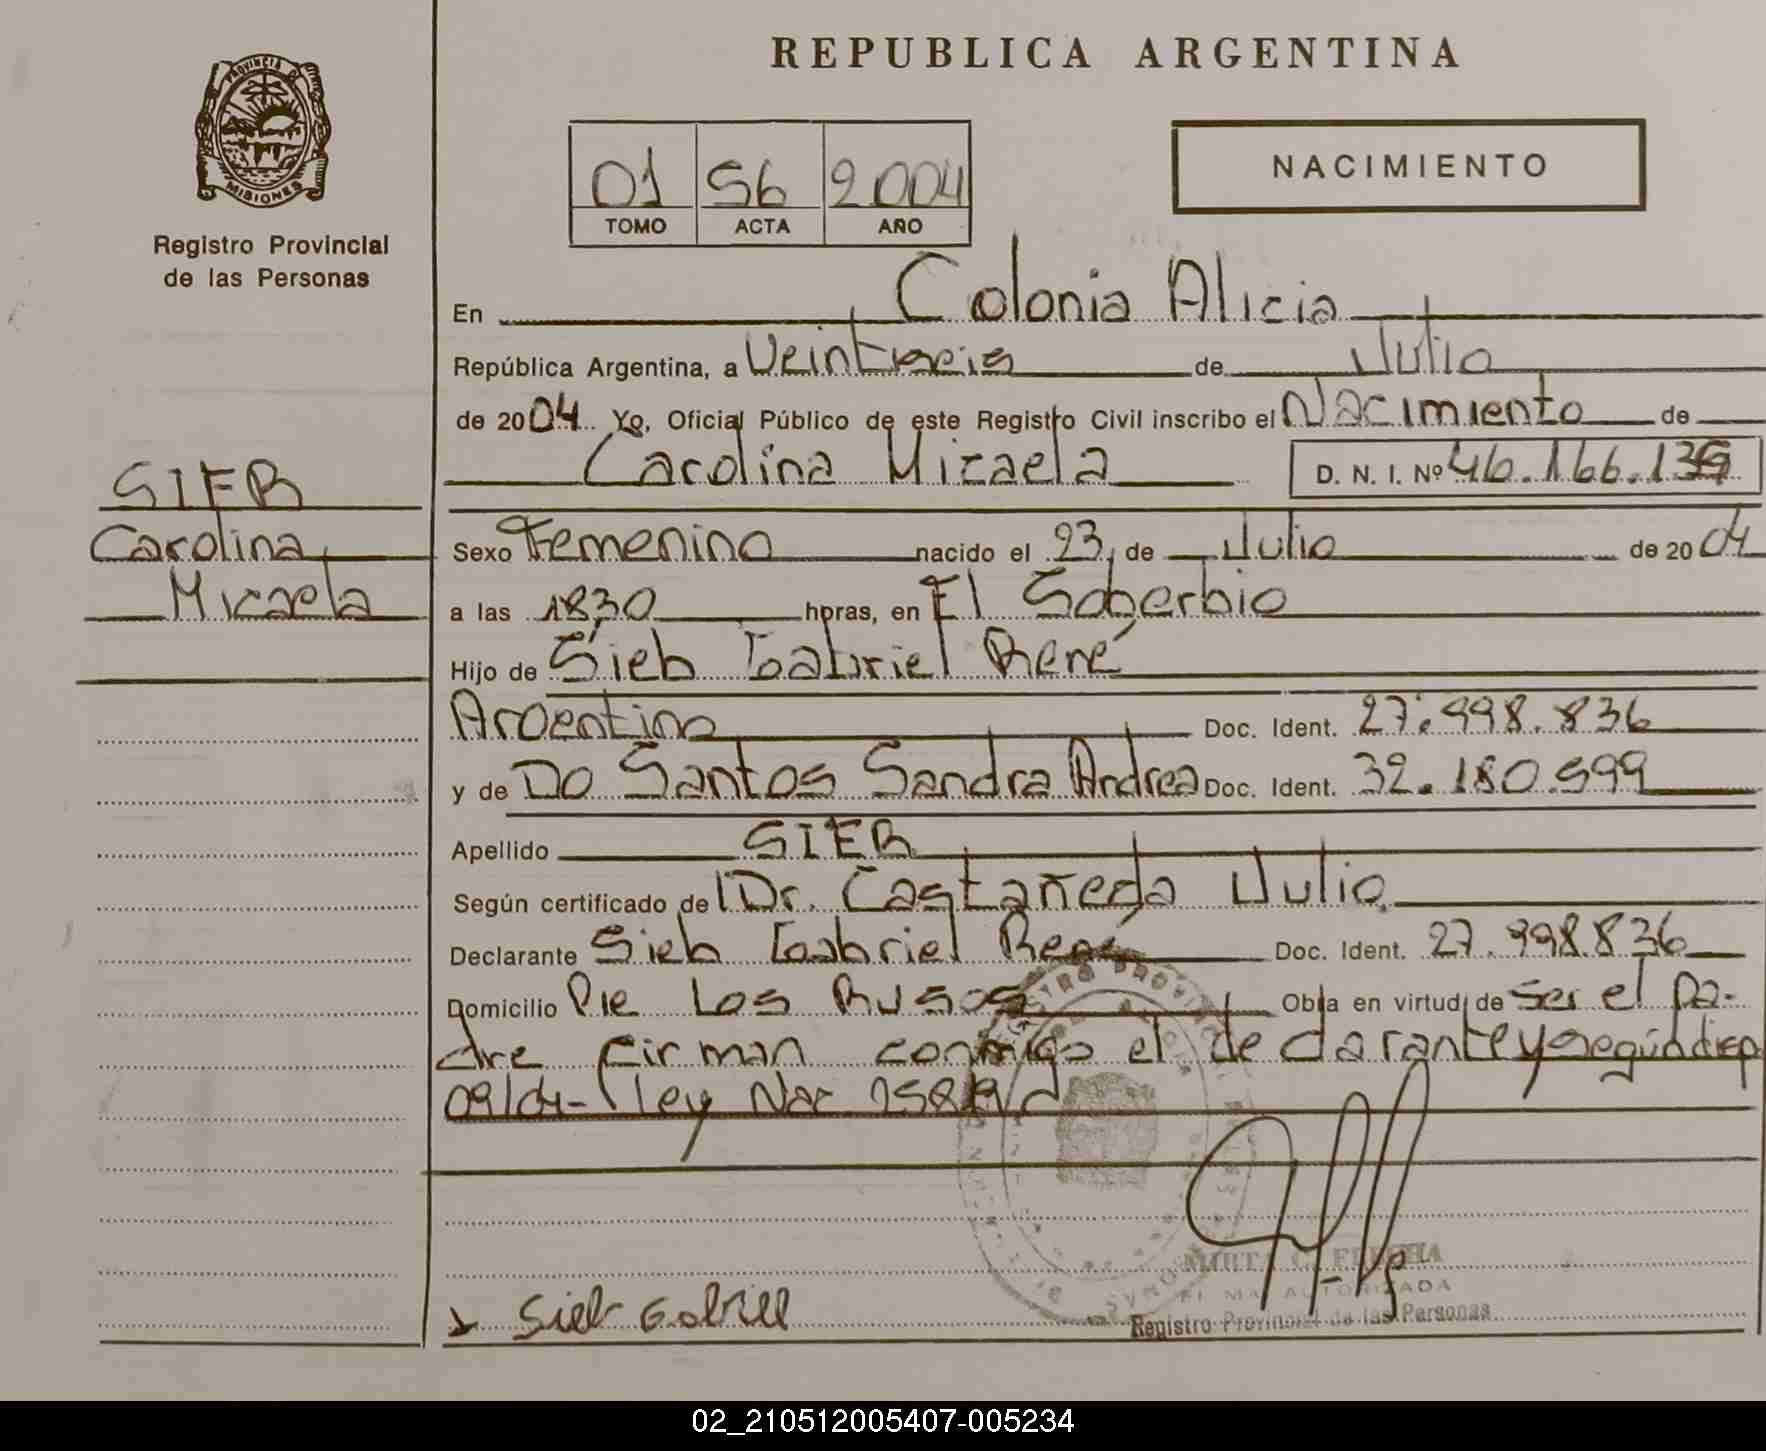 REPUBLICA ARGENTINA
PROVINCIA DE
MISIONES
Registro Provincial
de las Personas
01 56 2004
TOMO ACTA AÑO
NACIMIENTO
En Colonia Alicia
República Argentina, a Veintiseis de Julio
de 2004. Yo, Oficial Público de este Registro Civil inscribo el Nacimiento de
Carolina Micaela D. N. I. Nº 46.166.139
SIEB
Carolina
Micaela
Sexo Femenino nacido el 23, de Julio de 2004
a las 1830 horas, en El Soberbio
Hijo de Sieb Gabriel René
Argentino Doc. Ident. 27.998.836
y de Do Santos Sandra Andrea Doc. Ident. 32.180.599
Apellido SIEB
Según certificado de Dr. Castañeda Julio.
Declarante Sieb Gabriel René Doc. Ident. 27.998.836
Domicilio Pje Los Rusos Obra en virtud de ser el Pa-
dre firman conmigo el declarante y según disp
09/04- ley Nac
Sieb Gabriel
MIRTA C.
AUTORIZADA
Registro Provincial de las Personas
02_210512005407-005234